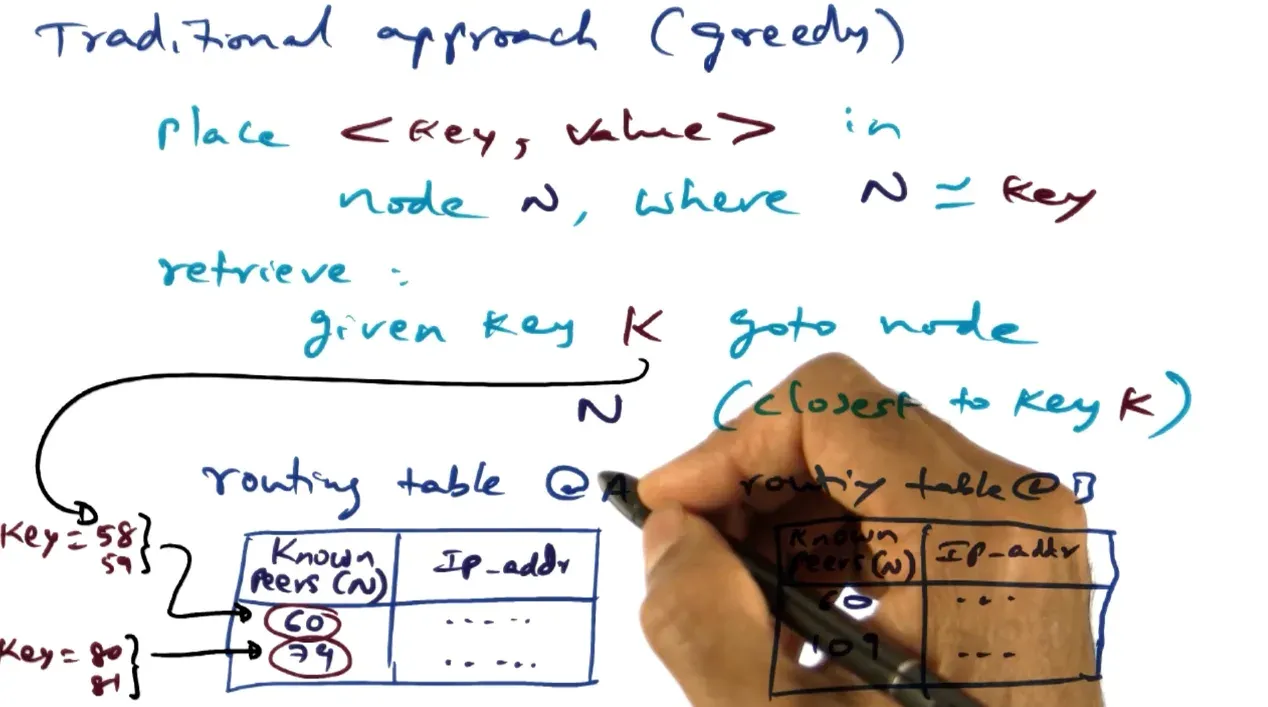 Traditional approach (greedy)
place <key, value> in
node N, where N ≃ key
retrieve :
given key K goto node
N (closest to key K)
routing table @A
routing table @ B
Key = 58
59
Key = 80
81
Known Peers (N) Ip_addr
60 .....
79 .. ...
Known Peers (N) Ip_addr
60 ...
109 ---